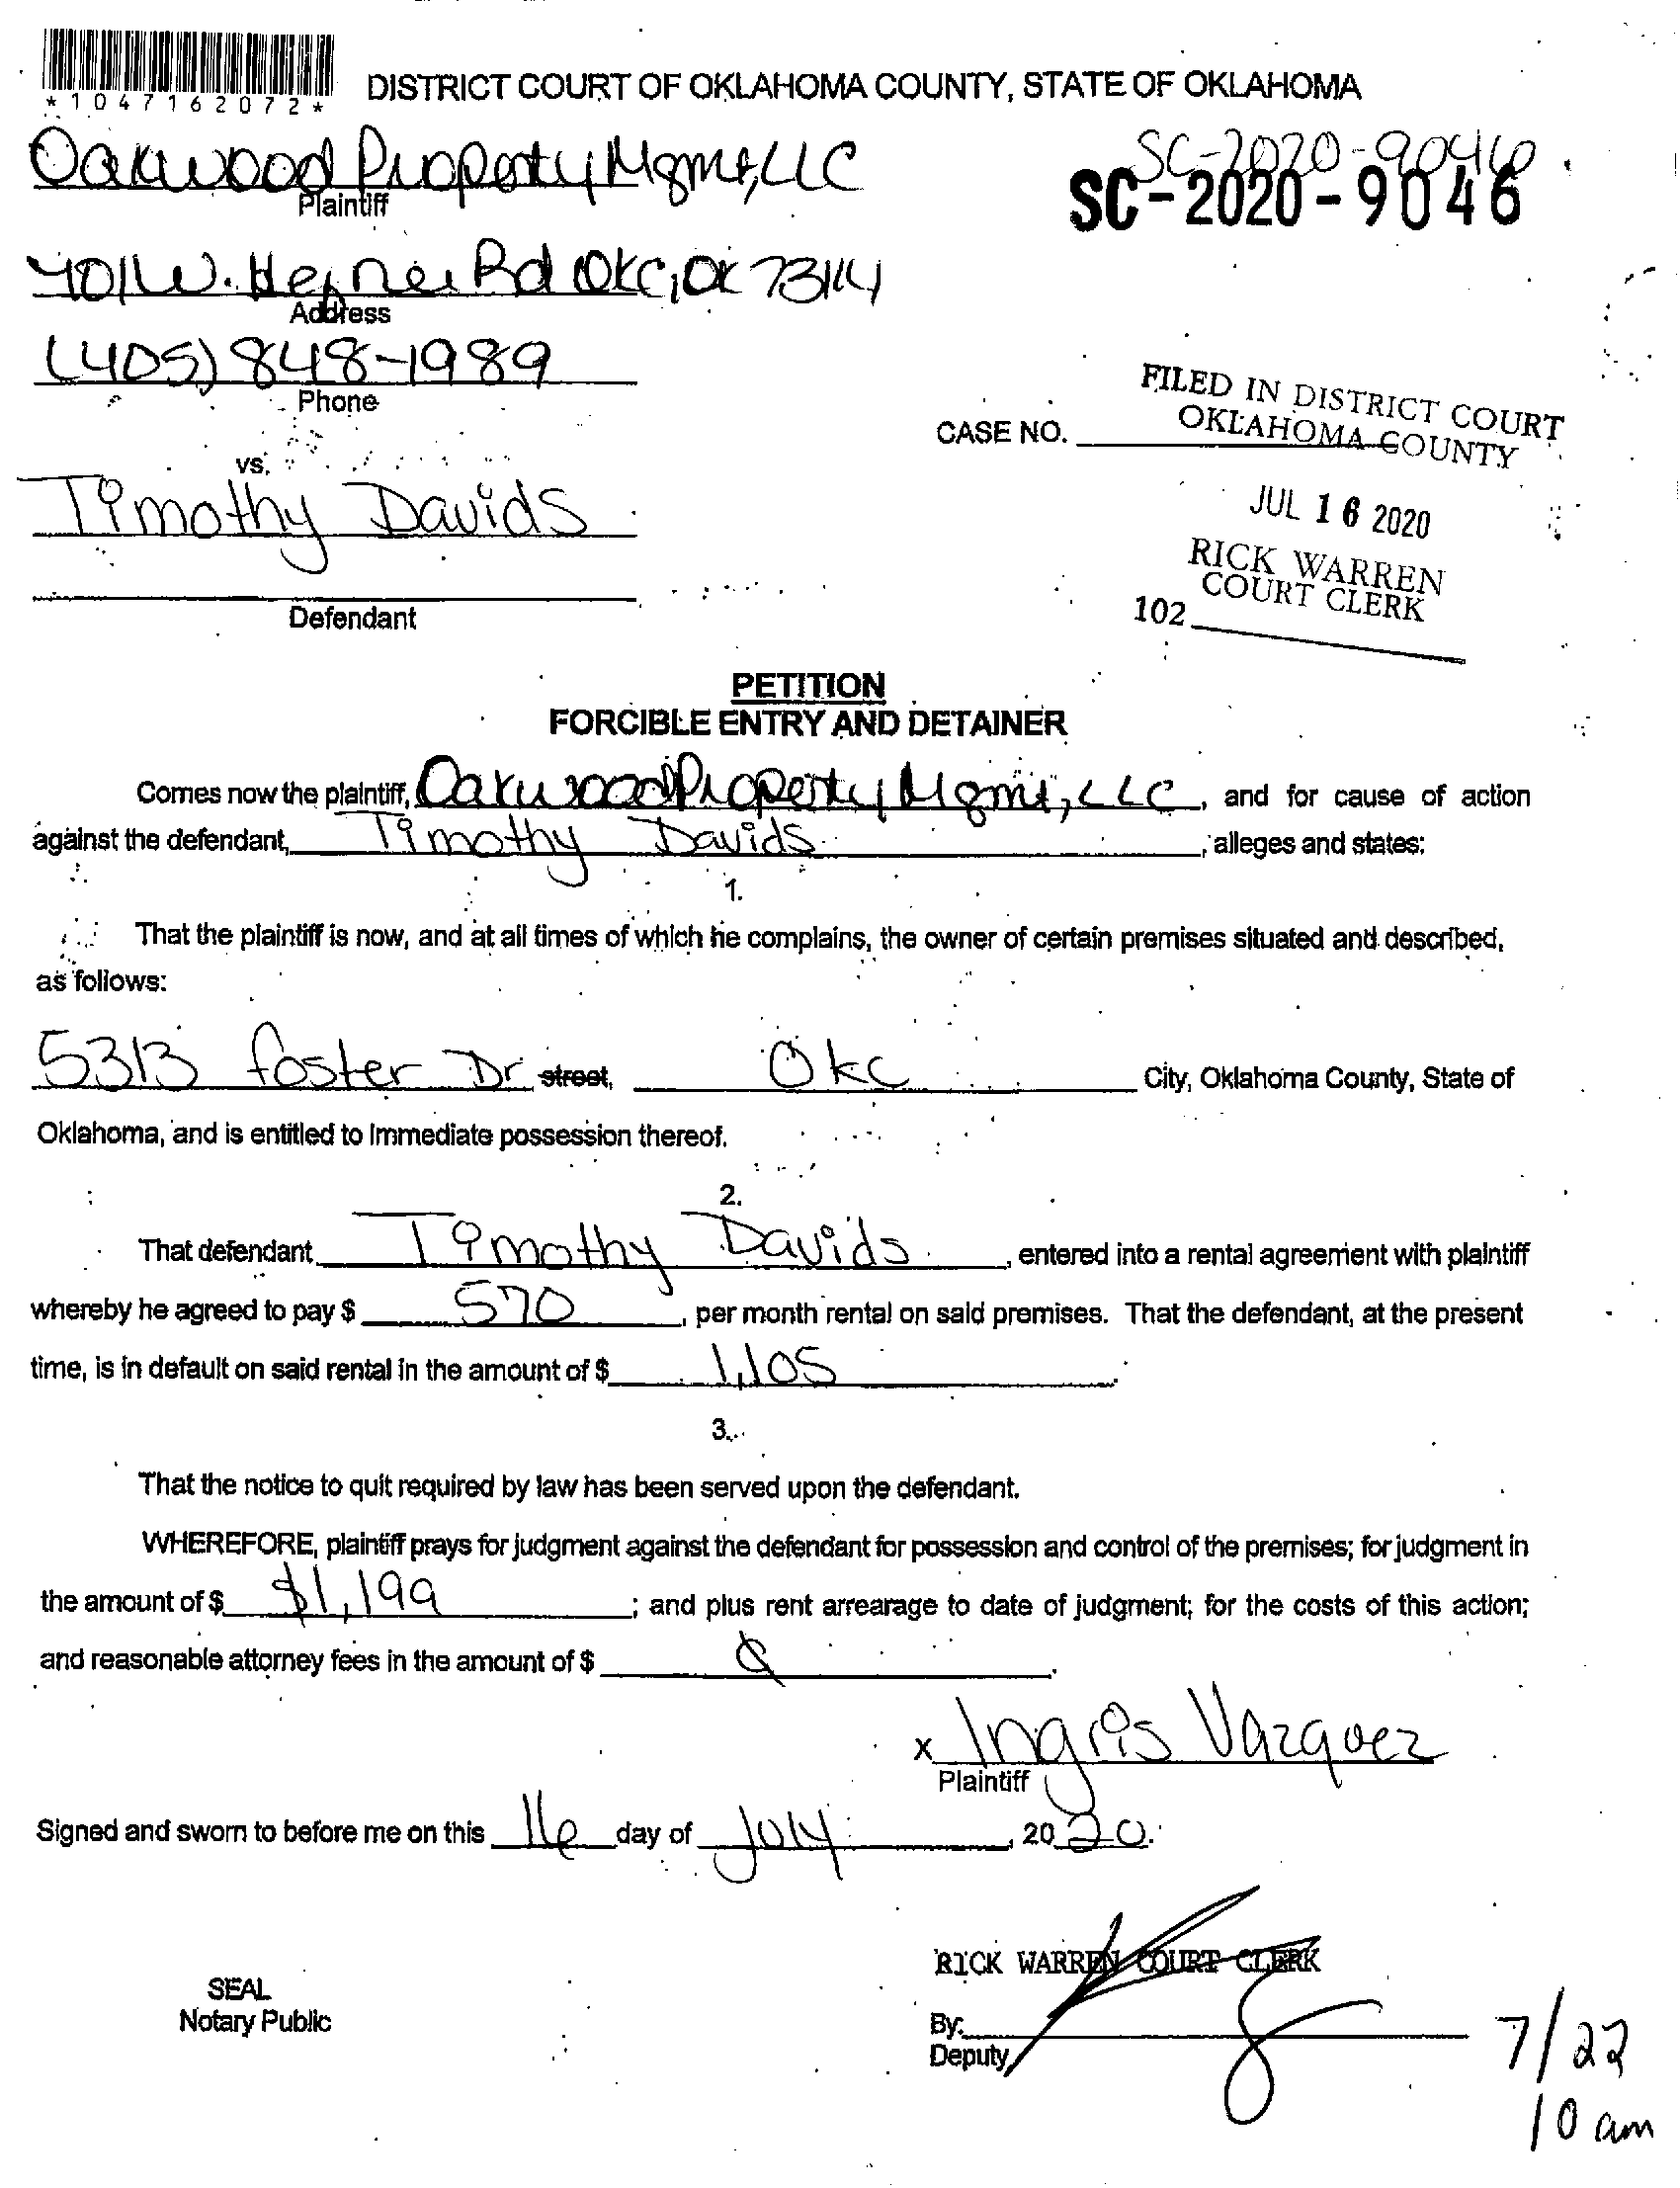 *1047162072*
DISTRICT COURT OF OKLAHOMA COUNTY, STATE OF OKLAHOMA
Oakwood Property Mgmt, LLC
Plaintiff
SC-2020-9046
SC-2020-9046
401 W. Hefner Rd OKC, OK 73114
Address
(405) 848-1989
Phone
FILED IN DISTRICT COURT
OKLAHOMA COUNTY
CASE NO.
vs.
Timothy Davids
JUL 16 2020
RICK WARREN
COURT CLERK
102
Defendant
PETITION
FORCIBLE ENTRY AND DETAINER
Comes now the plaintiff, Oakwood Property Mgmt, LLC, and for cause of action
against the defendant, Timothy Davids, alleges and states:
1.
That the plaintiff is now, and at all times of which he complains, the owner of certain premises situated and described,
as follows:
5313 foster Dr street, Okc City, Oklahoma County, State of
Oklahoma, and is entitled to immediate possession thereof.
2.
That defendant, Timothy Davids, entered into a rental agreement with plaintiff
whereby he agreed to pay $ 570, per month rental on said premises. That the defendant, at the present
time, is in default on said rental in the amount of $ 1,105.
3.
That the notice to quit required by law has been served upon the defendant.
WHEREFORE, plaintiff prays for judgment against the defendant for possession and control of the premises; for judgment in
the amount of $ $1,199; and plus rent arrearage to date of judgment; for the costs of this action;
and reasonable attorney fees in the amount of $
x Ingris Vazquez
Plaintiff
Signed and sworn to before me on this 16 day of July, 2020.
RICK WARREN COURT CLERK
SEAL
Notary Public
By:
Deputy
7/22
10 am